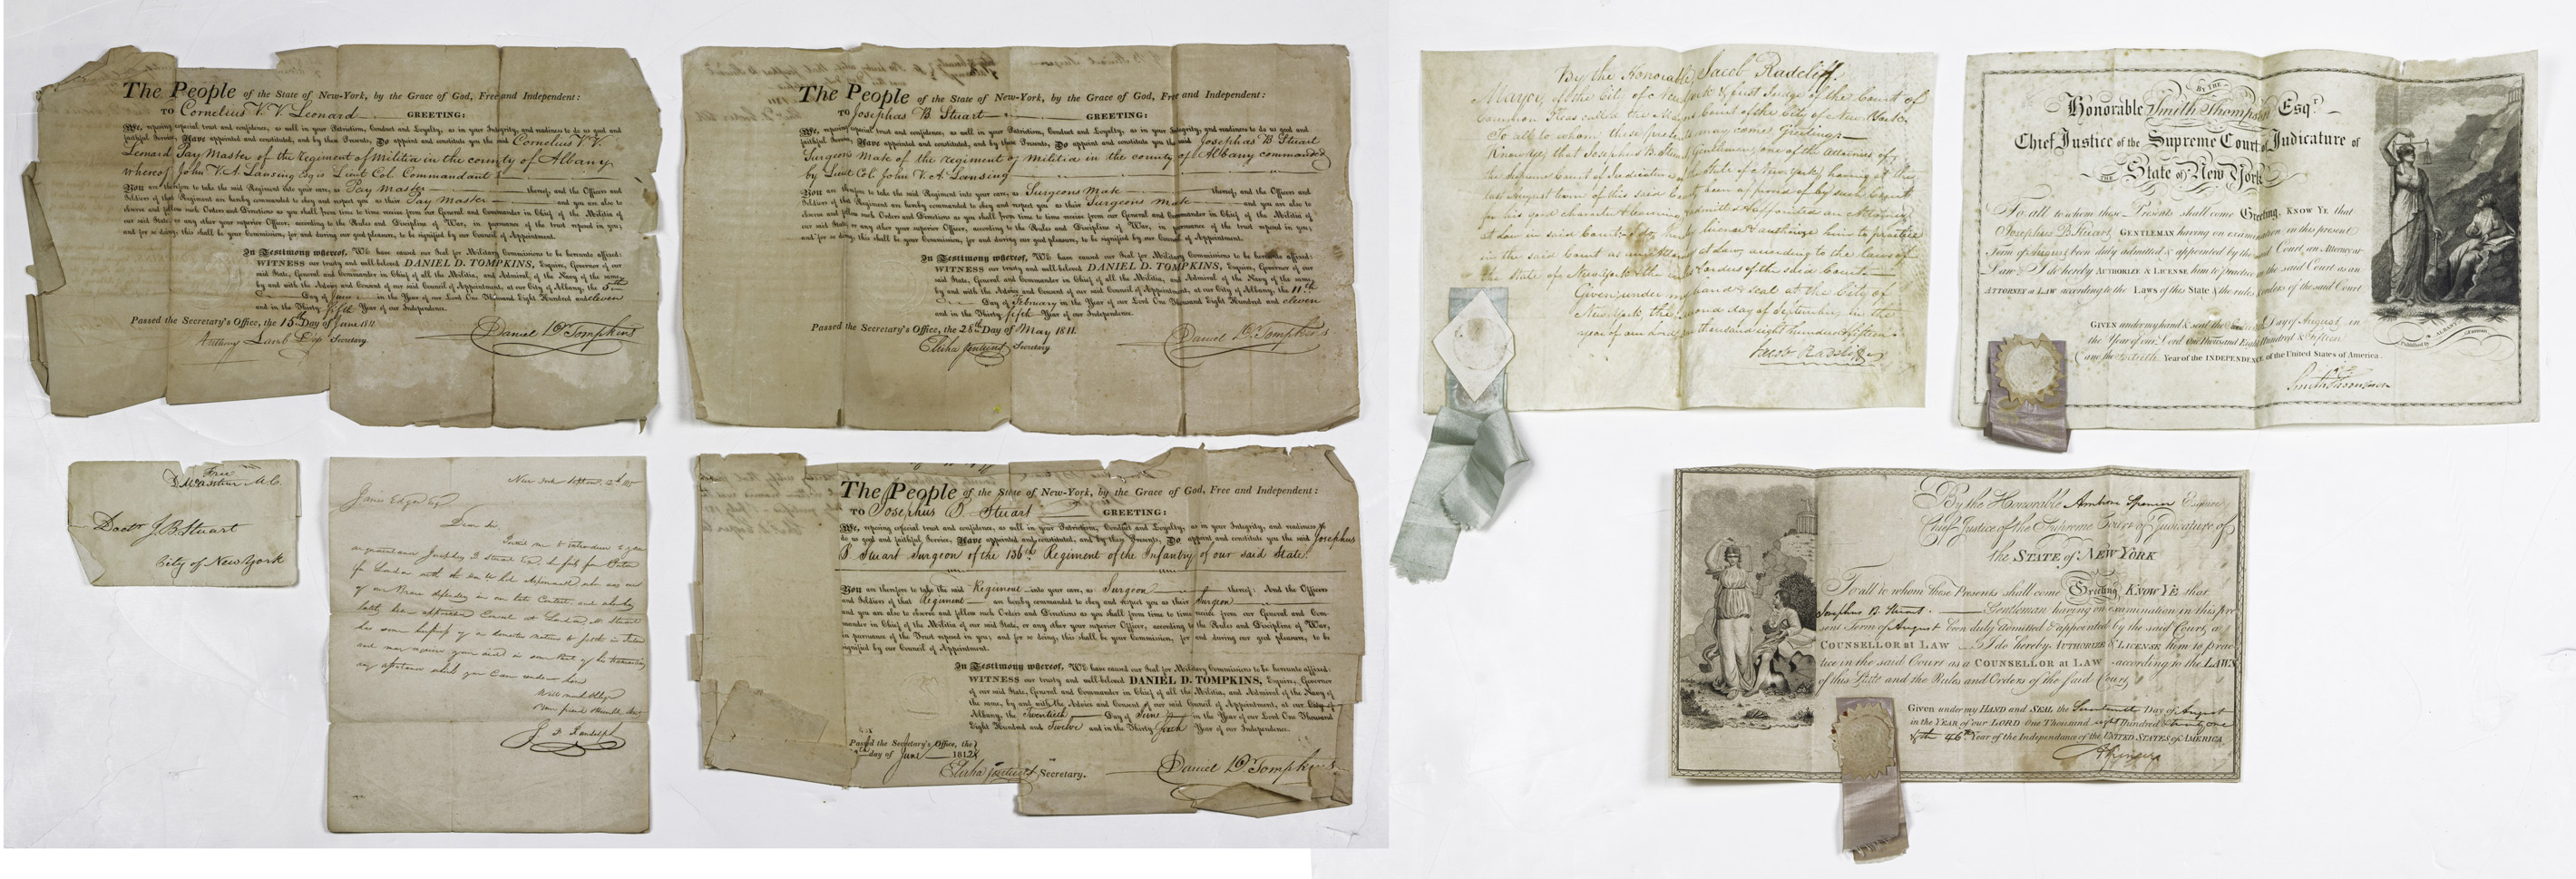 The People of the State of New-York, by the Grace of God, Free and Independent:
TO Cornelius V. V. Leonard GREETING:
We, reposing especial trust and confidence, as well in your Patriotism, Conduct and Loyalty, as in your Integrity, and readiness to do us good and
faithful Service, Have appointed and constituted, and by these Presents, Do appoint and constitute you the said Cornelius V. V.
Leonard Pay Master of the Regiment of Militia in the county of Albany
whereof John V. A. Lansing Esq is Lieut Col. Commandant
You are therefore to take the said Regiment into your care, as Pay Master thereof, and the Officers and
Soldiers of that Regiment are hereby commanded to obey and respect you as their Pay Master and you are also to
observe and follow such Orders and Directions as you shall from time to time receive from our General and Commander in Chief of the Militia of
our said State, or any other your superior Officer, according to the Rules and Discipline of War, in pursuance of the trust reposed in you;
and for so doing, this shall be your Commission, for and during our good pleasure, to be signified by our Council of Appointment.
In Testimony whereof, We have caused our Seal for Military Commissions to be hereunto affixed:
WITNESS our trusty and well-beloved DANIEL D. TOMPKINS, Esquire, Governor of our
said State, General and Commander in Chief of all the Militia, and Admiral of the Navy of the same,
by and with the Advice and Consent of our said Council of Appointment, at our City of Albany, the 5th
Day of June in the Year of our Lord One Thousand Eight Hundred and eleven
and in the Thirty fifth Year of our Independence.
Passed the Secretary's Office, the 15th Day of June 1811
Anthony Lamb Dep Secretary
Daniel D Tompkins
The People of the State of New-York, by the Grace of God, Free and Independent:
TO Josephus B Stuart GREETING:
We, reposing especial trust and confidence, as well in your Patriotism, Conduct and Loyalty, as in your Integrity, and readiness to do us good and
faithful Service, Have appointed and constituted, and by these Presents, Do appoint and constitute you the said Josephus B Stuart
Surgeons Mate of the regiment of Militia in the county of Albany commanded
by Lieut Col. John V. A. Lansing
You are therefore to take the said Regiment into your care, as Surgeons Mate thereof, and the Officers and
Soldiers of that Regiment are hereby commanded to obey and respect you as their Surgeons Mate and you are also to
observe and follow such Orders and Directions as you shall from time to time receive from our General and Commander in Chief of the Militia of
our said State, or any other your superior Officer, according to the Rules and Discipline of War, in pursuance of the trust reposed in you;
and for so doing, this shall be your Commission, for and during our good pleasure, to be signified by our Council of Appointment.
In Testimony whereof, We have caused our Seal for Military Commissions to be hereunto affixed:
WITNESS our trusty and well-beloved DANIEL D. TOMPKINS, Esquire, Governor of our
said State, General and Commander in Chief of all the Militia, and Admiral of the Navy of the same,
by and with the Advice and Consent of our said Council of Appointment, at our City of Albany, the 11th
Day of February in the Year of our Lord One Thousand Eight Hundred and eleven
and in the Thirty fifth Year of our Independence.
Passed the Secretary's Office, the 28th Day of May 1811.
Elisha Jenkins Secretary
Daniel D Tompkins
Free
M.C.
Doctr J. B Stuart
City of New York
New York Septem. 12th
James Edgar Esq
Dear Sir,
Permit me to introduce to your
acquaintance Josephus B Stuart Esq.
for London with
of our Brave defenders in our late Contest, and who has
lately been appointed Consul at London, Mr Stuart
has some business of a
and may require your aid in some Part of his transactions
any assistance which you can render him
Will much oblige
Your friend & humble
J. F. Randolph
The People of the State of New-York, by the Grace of God, Free and Independent:
TO Josephus B. Stuart GREETING:
We, reposing especial trust and confidence, as well in your Patriotism, Conduct and Loyalty, as in your Integrity, and readiness to
do us good and faithful Service, Have appointed and constituted, and by these Presents, Do appoint and constitute you the said Josephus
B Stuart Surgeon of the 136th Regiment of the Infantry of our said State.
You are therefore to take the said Regiment into your care, as Surgeon thereof: And the Officers
and Soldiers of that Regiment are hereby commanded to obey and respect you as their Surgeon
and you are also to observe and follow such Orders and Directions as you shall from time to time receive from our General and Com-
mander in Chief of the Militia of our said State, or any other your superior Officer, according to the Rules and Discipline of War,
in pursuance of the Trust reposed in you; and for so doing, this shall be your Commission, for and during our good pleasure, to be
signified by our Council of Appointment.
In Testimony whereof, We have caused our Seal for Military Commissions to be hereunto affixed:
WITNESS our trusty and well-beloved DANIEL D. TOMPKINS, Esquire, Governor
of our said State, General and Commander in Chief of all the Militia, and Admiral of the Navy of
the same, by and with the Advice and Consent of our said Council of Appointment, at our City of
Albany, the Twentieth Day of June in the Year of our Lord One Thousand
Eight Hundred and Twelve and in the Thirty Sixth Year of our Independence.
Passed the Secretary's Office, the
day of June 1812
Elisha Jenkins Secretary.
Daniel D Tompkins
By the Honorable Jacob Radcliff.
Mayor of the City of New York & first Judge of the Court of
Common Pleas called the Mayors Court of the City of New York.
To all to whom these presents may come Greeting
Know ye that Josephus B. Stuart Gentleman, one of the attornies of
the Supreme Court of Judicature of the State of New York, having at the
last August term of this said Court been approved of by such Court
for his good character & learning, admitted & appointed an Attorney
at Law in said Court I do hereby license & authorize him to practice
in the said Court as an Attorney at Law, according to the laws of
the State of New York & the rules & orders of the said Court
Given under my hand & seal at the City of
New York the second day of September in the
year of our Lord one thousand eight hundred & fifteen.
Jacob Radcliff
BY THE
Honorable Smith Thompson Esqr
Chief Justice of the Supreme Court of Judicature of
THE State of New York
To all to whom these Presents shall come Greeting, KNOW YE that
Josephus B. Stuart, GENTLEMAN having on examination in this present
Term of August been duly admitted & appointed by the said Court, an Attorney at
Law. I do hereby AUTHORIZE & LICENSE him to practice in the said Court as an
ATTORNEY at LAW according to the Laws of this State & the rules & orders of the said Court
GIVEN under my hand & seal the Day of August in
the Year of our Lord One Thousand Eight Hundred & Fifteen
and the fortieth Year of the INDEPENDENCE of the United States of America.
Smith Thompson
Published by
ALBANY
By the Honorable Ambrose Spencer Esquire,
Chief Justice of the Supreme Court of Judicature of
the STATE of NEW YORK
To all to whom these Presents shall come Greeting KNOW YE that
Josephus B. Stuart Gentleman having on examination in this pre
sent Term of August been duly admitted & appointed by the said Court, a
COUNSELLOR at LAW I do hereby AUTHORIZE & LICENSE him to prac-
tice in the said Court as a COUNSELLOR at LAW according to the LAWS
of this State and the Rules and Orders of the said Court
Given under my HAND and SEAL the Seventeenth Day of August
in the YEAR of our LORD One Thousand eight Hundred & twenty one
& the 46th Year of the Independence of the UNITED STATES of AMERICA.
A Spencer